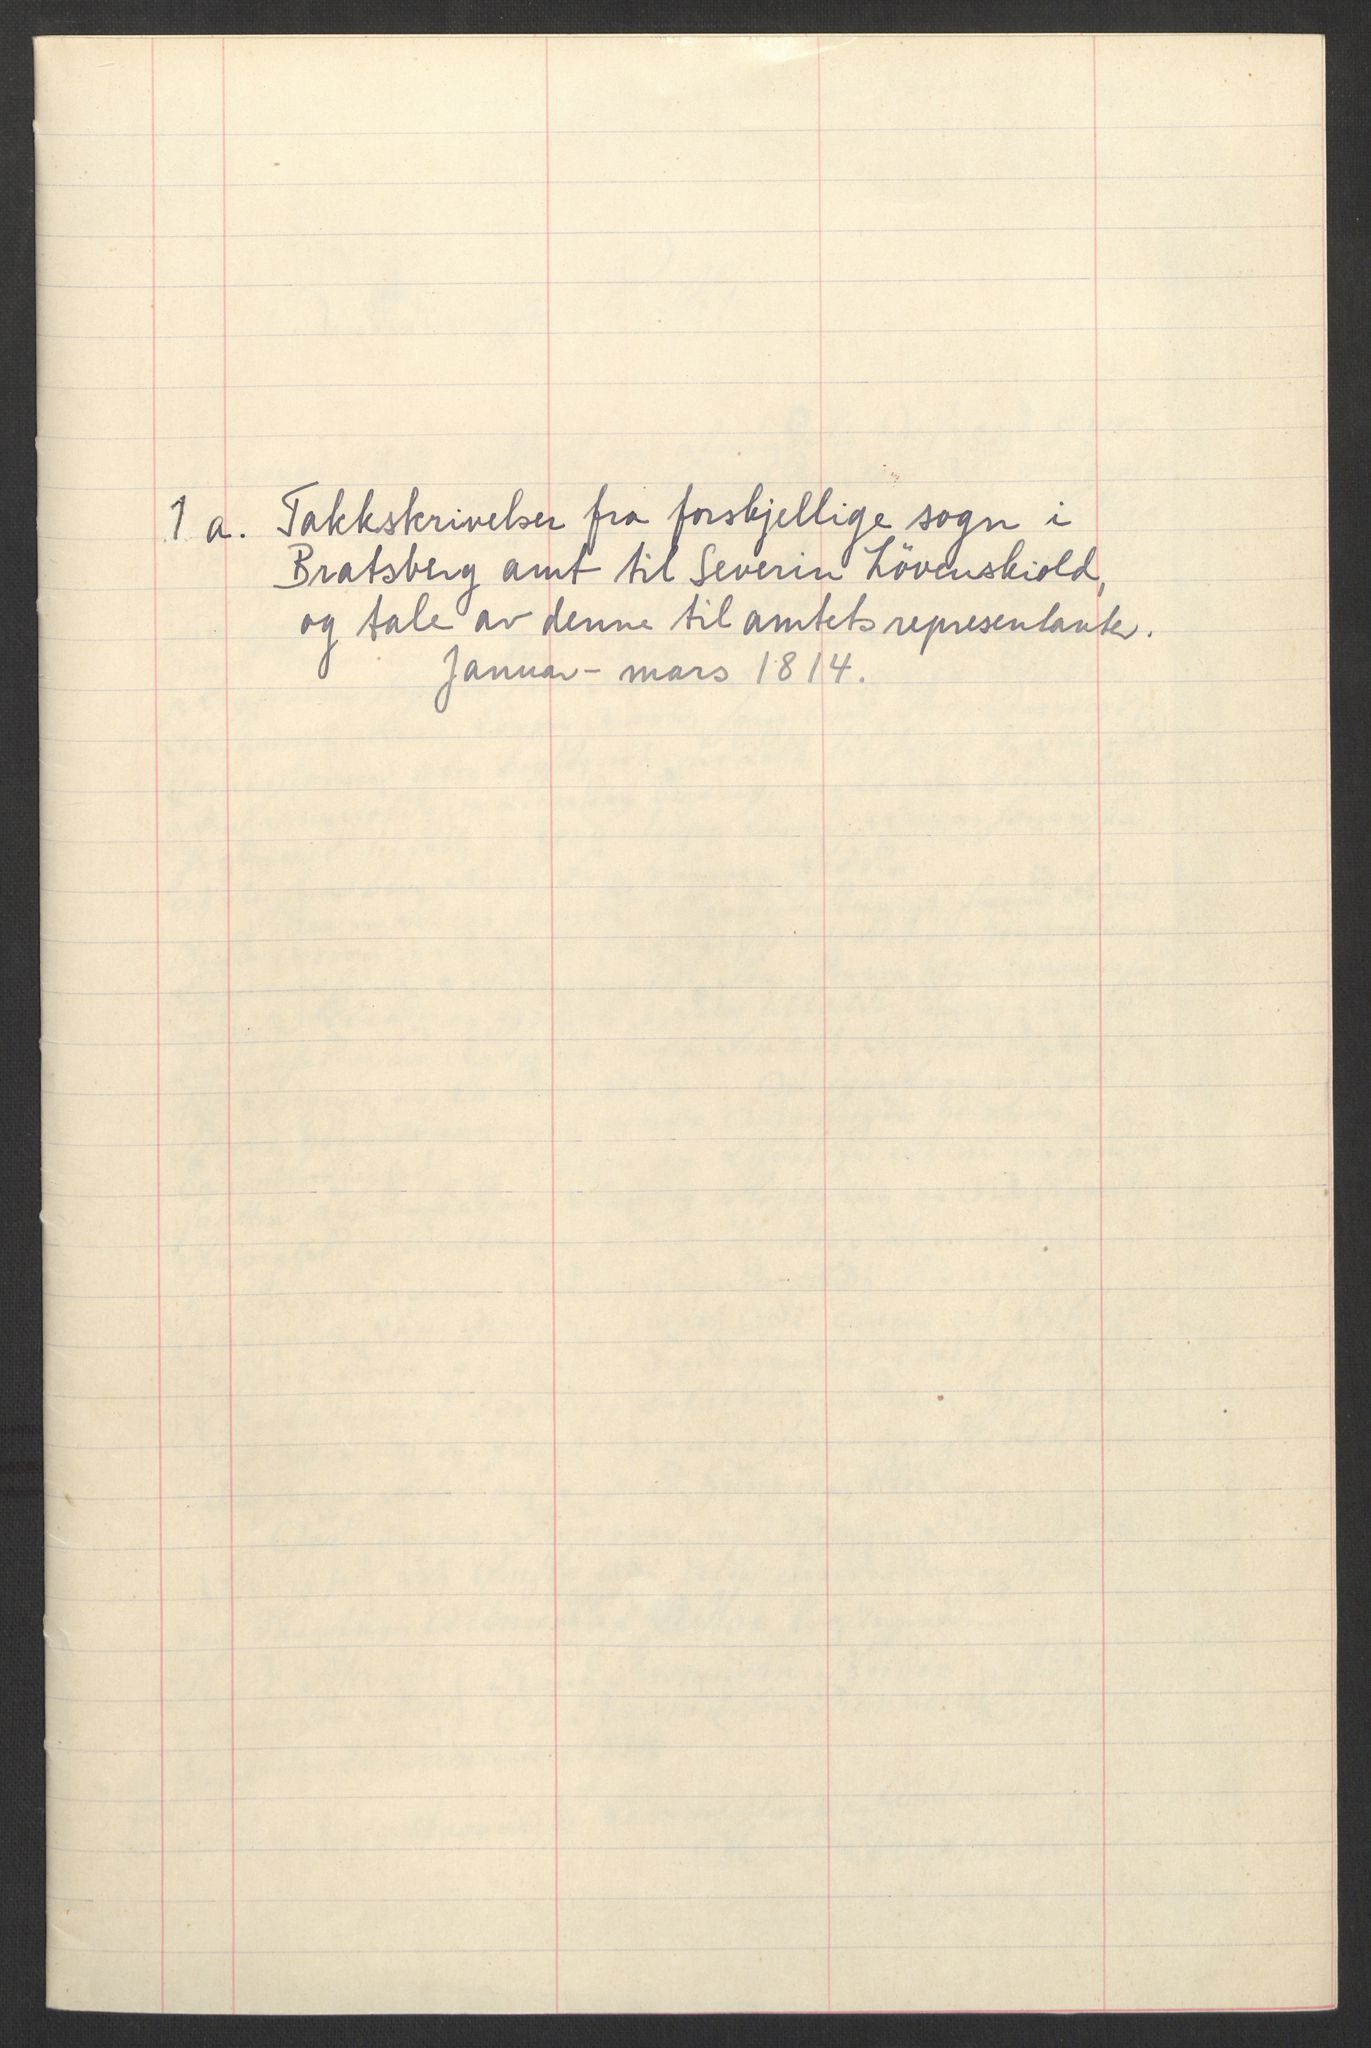 1 a. Takkskrivelser fra forskjellige sogn i
Bratsberg amt til Severin Lövenskiold,
og tale av denne til amtets representanter.
Januar - mars 1814.